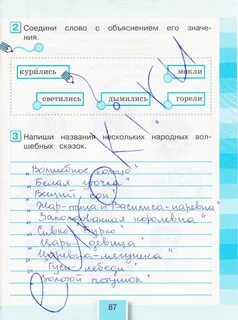 2 Соедини слово с объяснением его значе-
ния.
курились мокли
светились дымились горели
3 Напиши названия нескольких народных вол-
шебных сказок.
"Волшебное кольцо"
"Белая уточка"
"Вещий сон"
"Жар-птица и Василиса-царевна"
"Заколдованная королевна"
"Сивко-Бурко"
"Царь-девица"
"Царевна-лягушка"
"Гуси-лебеди"
"Золотой петушок"
87